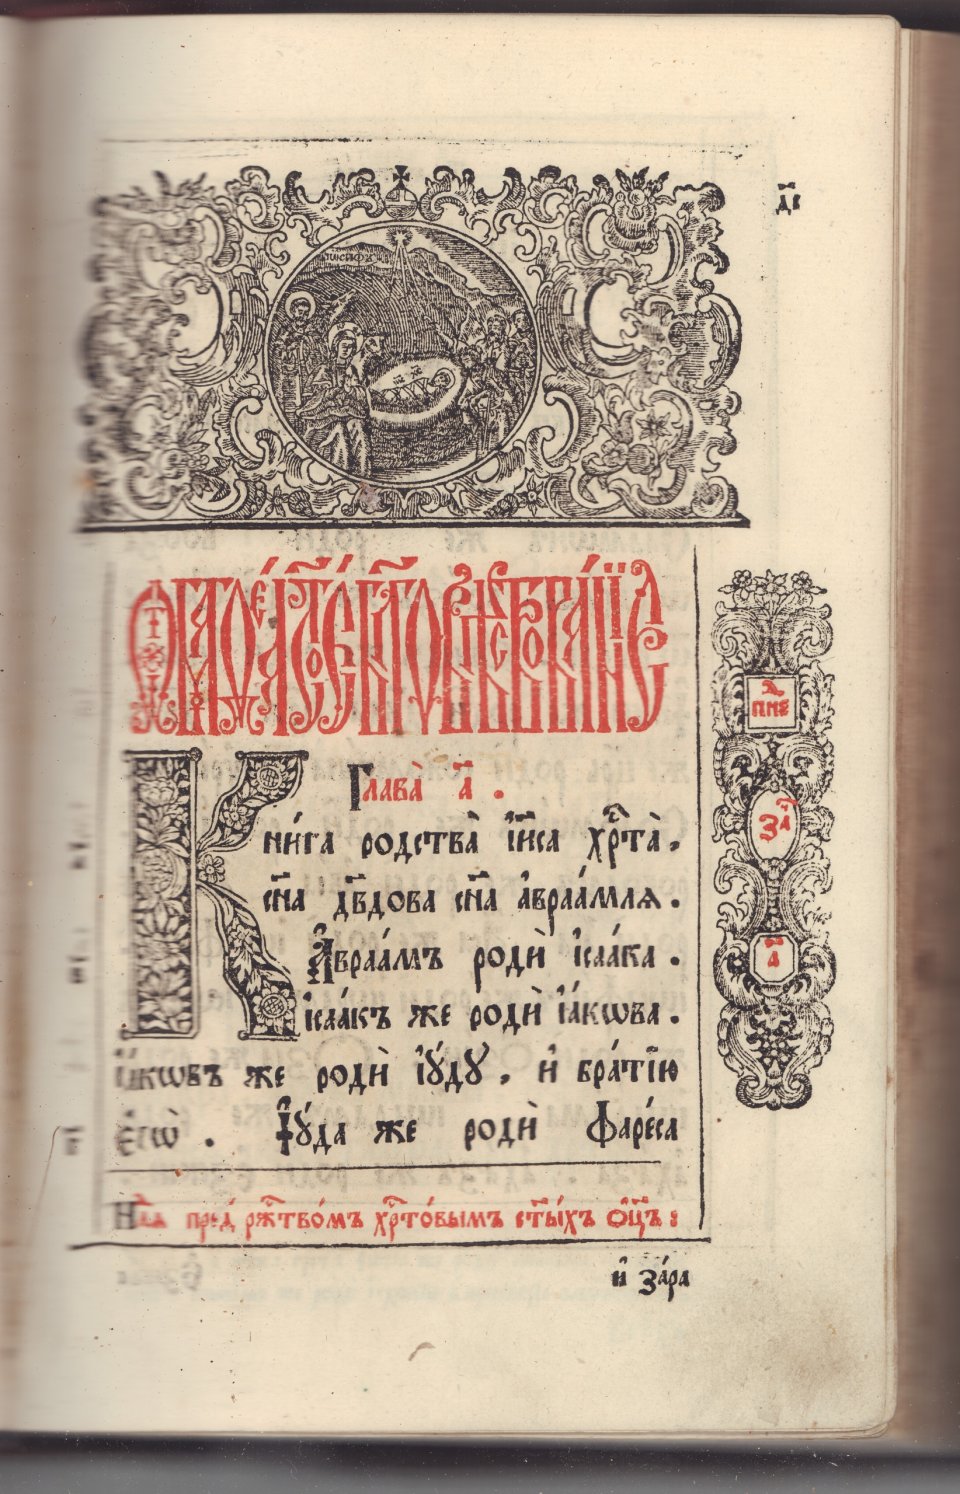 д҃і
Ѿ матѳе́а ст҃о́е бл҃говѣствова́нїе
Глава̀ а҃ .
Кни́га родства̀ і҆и҃са хр҇та̀,
сн҃а дв҃дова сн҃а а҆враа́мля .
А҆враа́мъ родѝ і҆саа́ка .
і҆саа́къ же родѝ і҆а́кѡва .
і҆а́кѡвъ же родѝ і҆ꙋ́дꙋ , и҆ бра́тїю
є҆гѡ̀ . І҆ꙋ́да же родѝ Фаре́са
Нд҃лѧ пред̾ рж҇тво́мъ хр҇то́вымъ ст҃ы́хъ ѻ҆ц҃ъ :
и҆ за́ра
пне
за҃
а҃